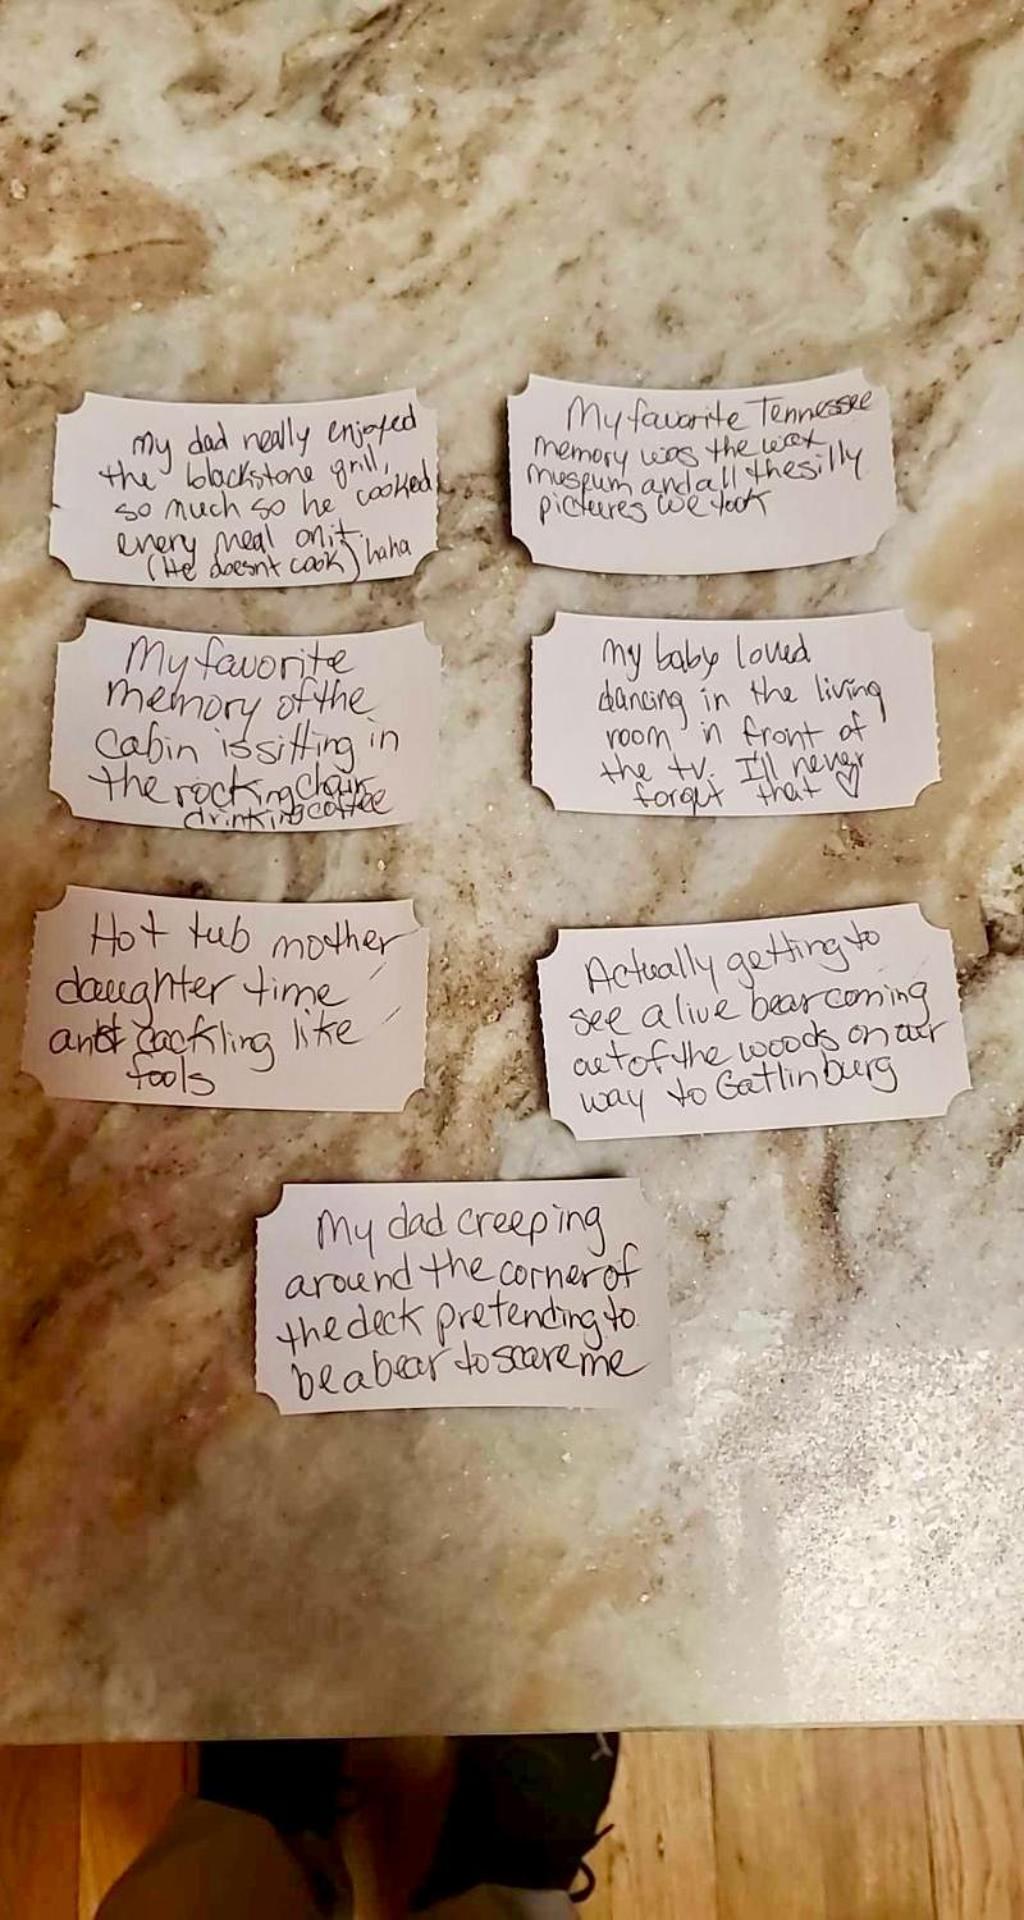 My dad really enjoyed
the blackstone grill,
so much so he cooked
every meal on it.
(He doesnt cook) haha
My favorite Tennessee
memory was the wax
museum and all the silly
pictures we took
My favorite
memory of the
cabin is sitting in
the rocking chair
drinking coffee
My baby loved
dancing in the living
room in front of
the tv. I'll never
forget that ♡
Hot tub mother
daughter time
and cackling like
fools
Actually getting to
see a live bear coming
out of the woods on our
way to Gatlinburg
My dad creeping
around the corner of
the deck pretending to
be a bear to scare me